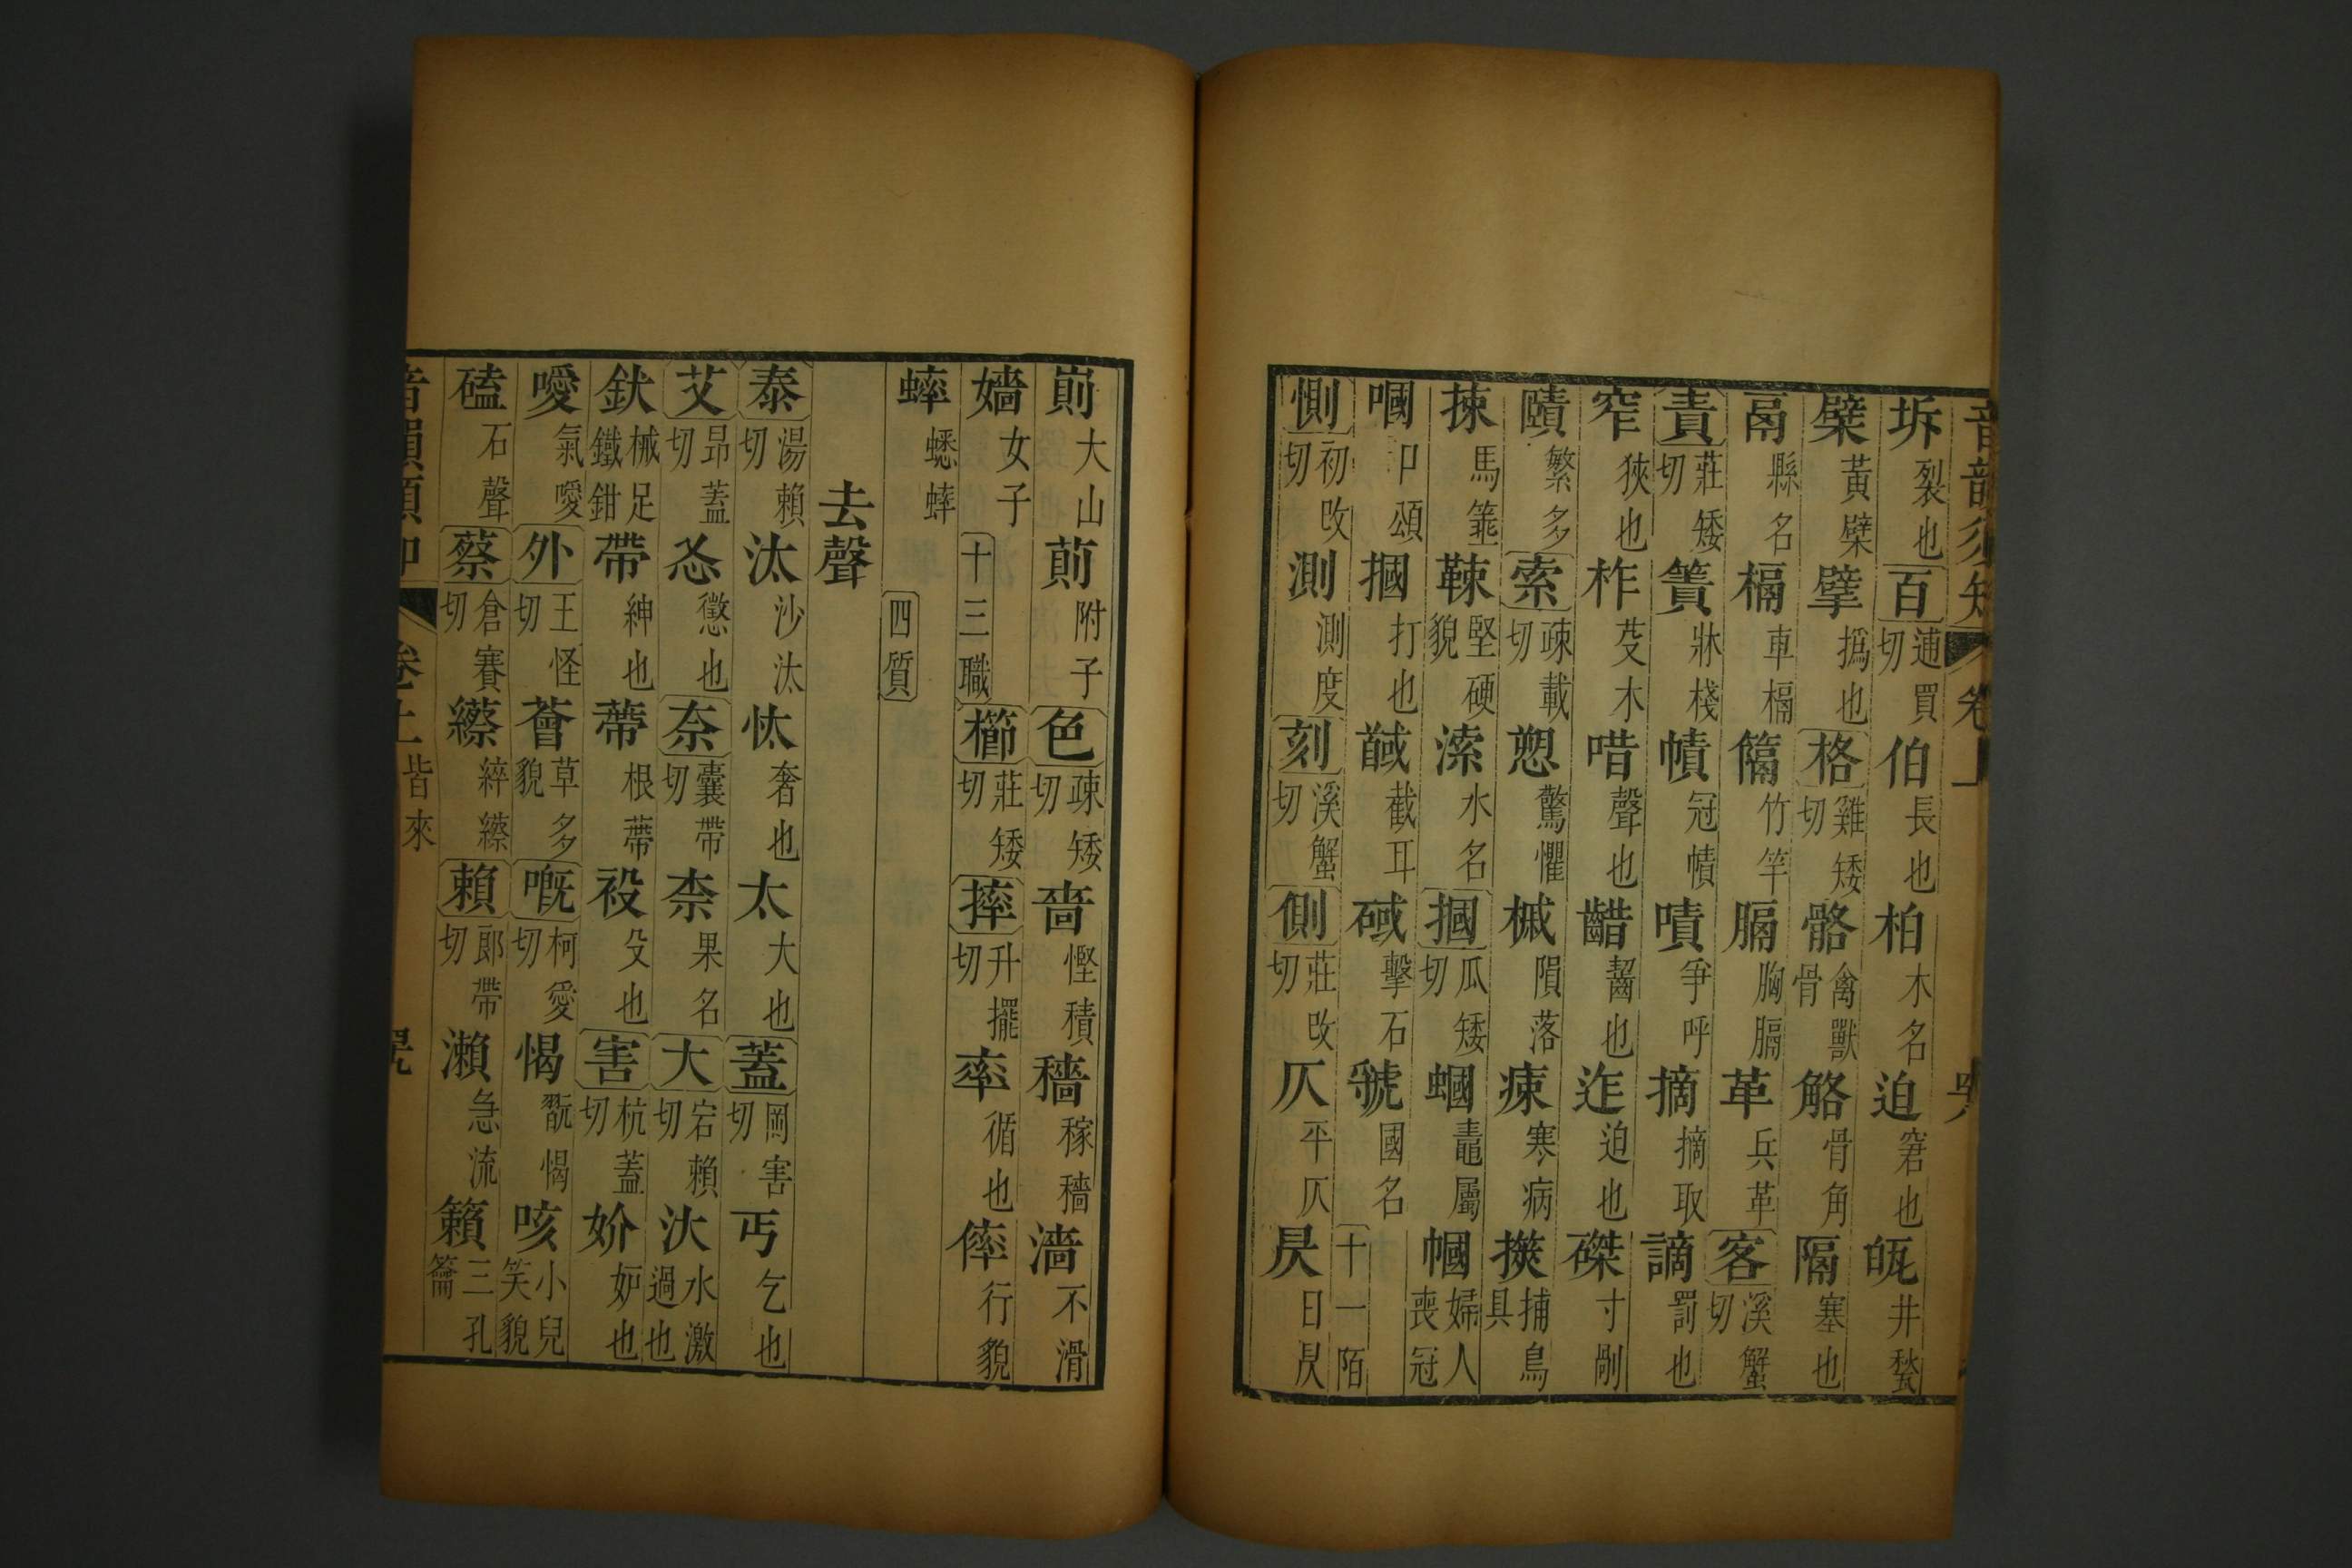 音韻須知 卷上
坼裂也百逋買切伯長也柏木名迫窘也瓸井甃
檗黃檗擘撝也格雞矮切骼禽獸骨觡骨角隔塞也
鬲縣名槅車槅䈪竹竿膈胸膈革兵革客溪蟹切
責莊矮切簀牀棧幘冠幘嘖爭呼摘摘取謫罰也
窄狹也柞芟木唶聲也齰齧也迮迫也磔寸剮
賾繁多索疎載切愬驚懼槭隕落㾊寒病㩧捕鳥具
拺馬箠𩊞堅硬貌溹水名摑瓜矮切蟈鼃屬幗婦人喪冠
嘓卩頌摑打也聝截耳㦯擊石虢國名十一陌
惻初改切測測度刻溪蟹切側莊改切仄平仄昃日昃
崱大山萴附子色疎矮切嗇慳積穡稼穡濇不滑
嬙女子十三職櫛莊矮切摔升擺切率循也㒔行貌
蟀蟋蟀四質
去聲
泰湯賴切汰沙汰忲奢也太大也蓋岡害切丐乞也
艾昂蓋切忥懲也奈囊帶切柰果名大宕賴切汏水激過也
釱械足鐵鉗帶紳也蔕根蔕祋殳也害杭蓋切妎妒也
噯氣噯外王怪切薈草多貌嘅柯愛切愒翫愒咳小兒笑貌
磕石聲蔡倉賽切縩綷縩賴郎帶切瀨急流籟三孔籥
音韻須知 卷上 皆來